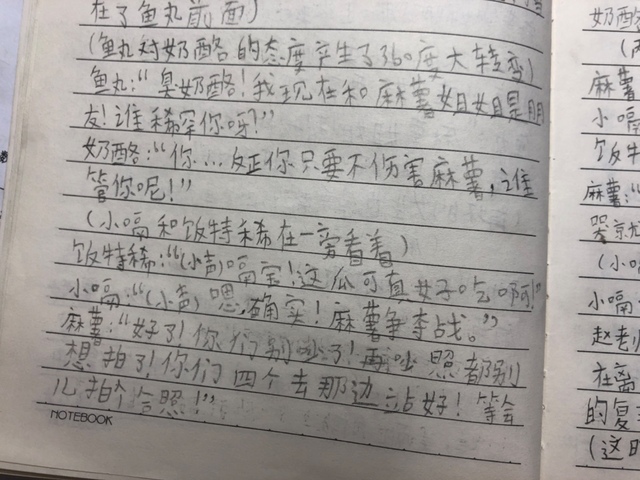 在了鱼丸前面)
(鱼丸对奶酪的态度产生了360度大转变)
鱼丸:“臭奶酪!我现在和麻薯姐姐是朋
友!谁稀罕你呀?”
奶酪:“你...反正你只要不伤害麻薯,谁
管你呢!”
(小嗝和饭特稀在一旁看着)
饭特稀:“(小声)嗝宝!这瓜可真好吃啊!”
小嗝:“(小声)嗯,确实!麻薯争夺战。”
麻薯:“好了!你们别吵了!再吵照都别
想拍了!你们四个去那边站好!等会
儿拍个合照!”
NOTEBOOK
奶酪
麻薯
小嗝
饭特
麻薯:“
哭
(小
小嗝
赵老
在离
的复
(这时